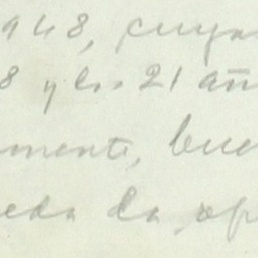 948, cuya
8 y los 21 añ
mente, bue
eda da, op